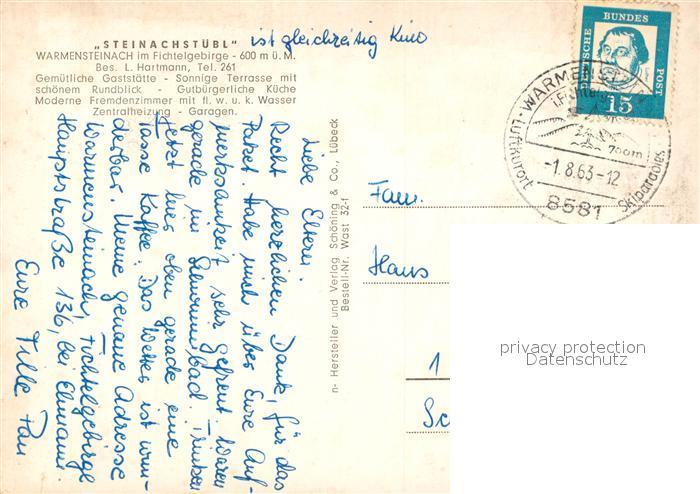 „STEINACHSTÜBL"
ist gleichzeitig Kino
WARMENSTEINACH im Fichtelgebirge - 600 m ü. M.
Bes. L. Hartmann, Tel. 261
Gemütliche Gaststätte - Sonnige Terrasse mit
schönem Rundblick - Gutbürgerliche Küche
Moderne Fremdenzimmer mit fl. w. u. k. Wasser
Zentralheizung - Garagen.
Liebe Eltern.
Recht herzlichen Dank, für das
Paket. Habe mich über Eure Auf-
merksamkeit sehr gefreut. Waren
gerade im Schwimmbad. Trinken
jetzt hier oben gerade eine
Tasse Kaffee. Das Wetter ist wun-
derbar. Meine genaue Adresse
Warmensteinach, Fichtelgebirge
Hauptstraße 136, bei
Eure
n- Hersteller und Verlag Schöning & Co., Lübeck
Bestell-Nr. Wast 32-f
DEUTSCHE BUNDES POST
15
WARMENST
i. Fichtelg
700m
-1.8.63-12
Luftkurort
Skiparadies
8581
Fam.
Hans
1
Sc
privacy protection
Datenschutz